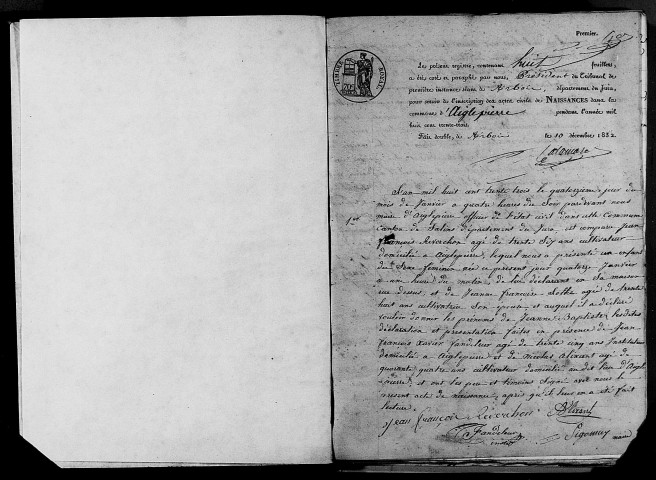 Premier.
TIMBRE ROYAL
Le présent registre, contenant huit feuillets,
a été coté et paraphé par nous, Président du Tribunal de
première instance séant à Arbois, département du Jura,
pour servir à l'inscription des actes civils de NAISSANCES dans la
commune d'Aiglepierre pendant l'année mil
huit cent trente-trois.
Fait double, à Arbois le 10 décembre 1832.
L'an mil huit cent trente trois le quatorzieme jour du
mois de Janvier a quatre heures du Soir pardevant nous
1er maire d'Aiglepierre officier de l'état civil dans cette Commune
Canton de Salins département du Jura, est comparu Jean
François Revachon agé de trente Six ans cultivateur
domicilié a Aiglepierre, lequel nous a présenté un enfant
de Sexe feminin née ce present jour quatorze Janvier
a une heure du matin, de lui déclarant en sa maison
ci dessus, et de Jeanne Françoise agé de trente
huit ans cultivatrice Son épouse et auquel il a déclaré
vouloir donner les prénoms de Jeanne Baptiste, lesdites
déclaration et presentation faites en présence de Jean
François Xavier Fandeleur agé de trente cinq ans
domicilié a Aiglepierre et de Nicolas Alixant agé de
quarante quatre ans cultivateur domicilié au dit lieu d'Aigle
pierre, et ont les pere et témoins Signé avec nous le
présent acte de naissance, après qu'il leur en a été fait
lecture.
Jean François Revachon
Fandeleur
Pigomay maire